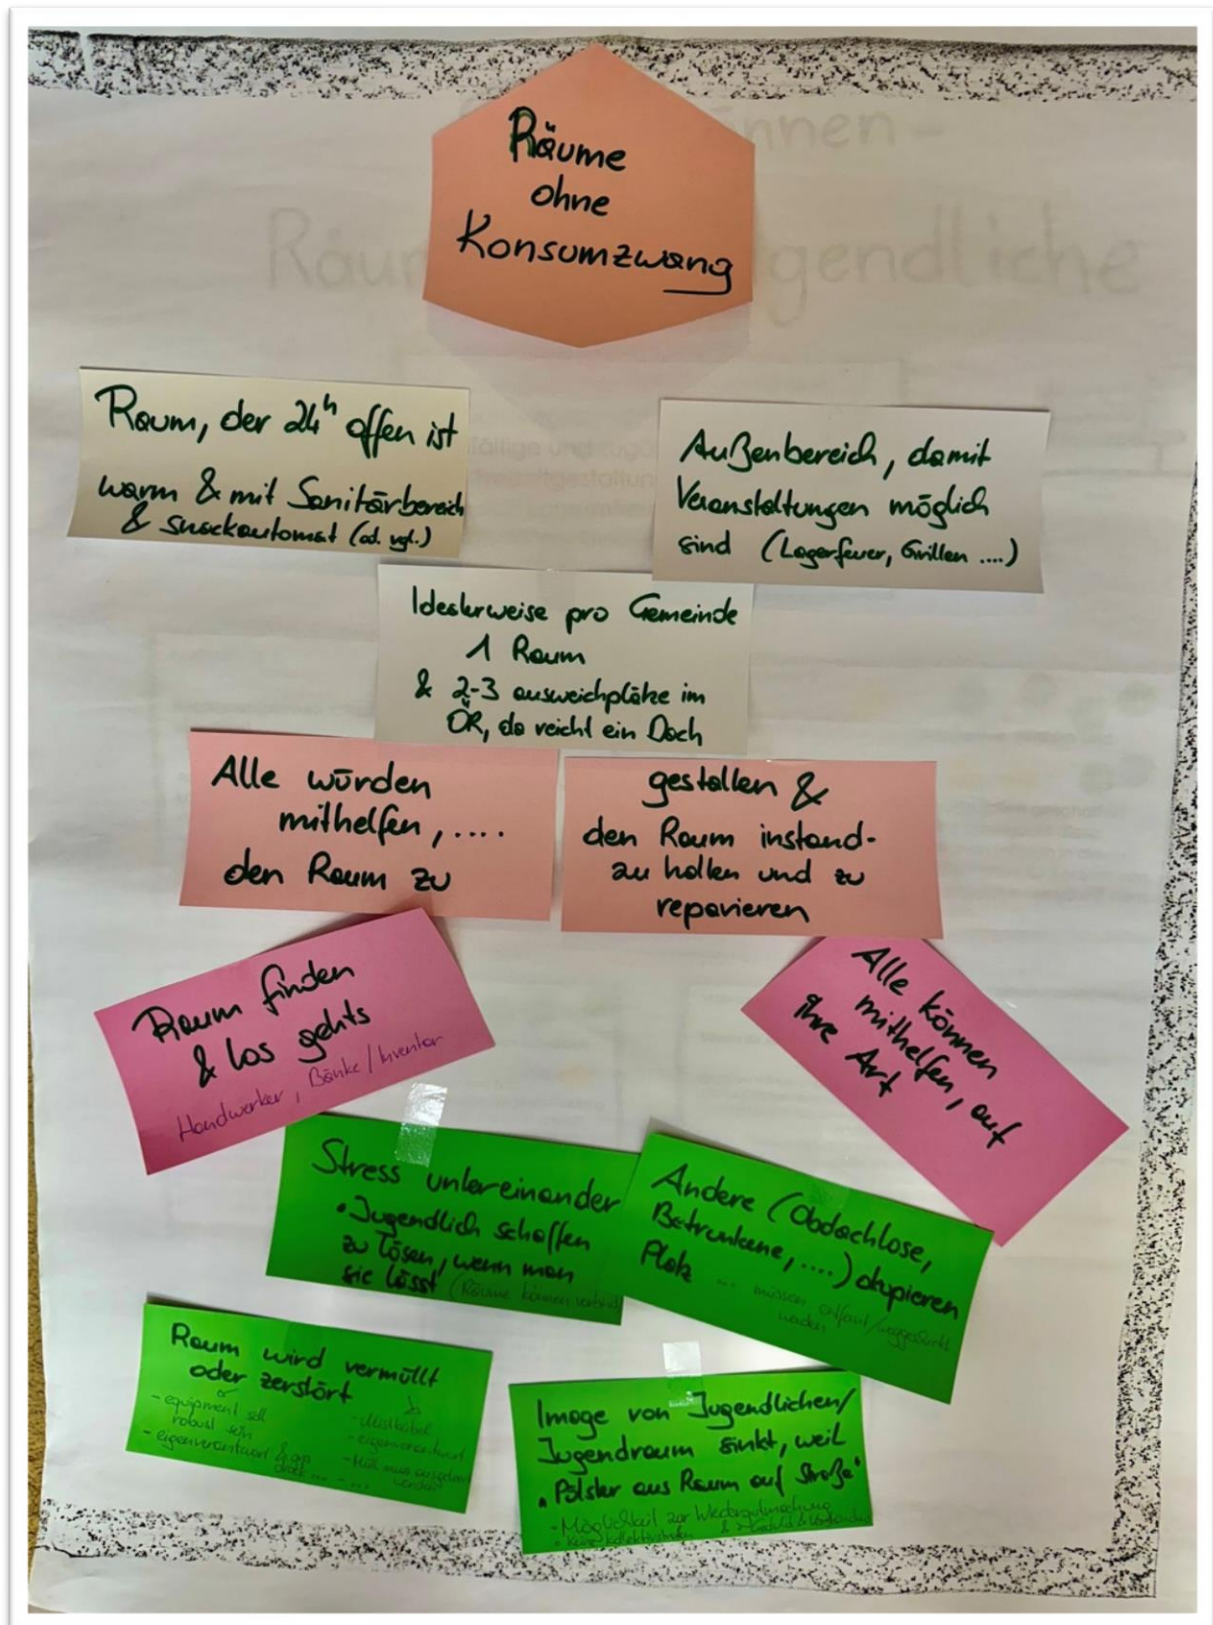 Räume
ohne
Konsumzwang
Raum, der 24h offen ist
warm & mit Sanitärbereich
& snackautomat (od. vgl.)
Außenbereich, damit
Veranstaltungen möglich
sind (Lagerfeuer, Grillen ....)
Idealerweise pro Gemeinde
1 Raum
& 2-3 ausweichplätze im
ÖR, da reicht ein Dach
Alle würden
mithelfen, ....
den Raum zu
gestalten &
den Raum instand-
zu halten und zu
reparieren
Raum finden
& los gehts
Handwerker, Bänke/Inventar
Alle können
mithelfen, auf
ihre Art
Stress untereinander
• Jugendlich schaffen
zu lösen, wenn man
sie lässt (Räume können
Andere (Obdachlose,
Betrunkene, ....) okupieren
Platz ... müssen entfernt/weggeschickt
werden
Raum wird vermüllt
oder zerstört
- equipment soll
robust sein
- eigenverantwort &
- Mistkübel
- eigenverantwort
- Müll muss
werden
Image von Jugendlichen/
Jugendraum sinkt, weil
"Pölster aus Raum auf Straße"
- Möglichkeit zur Wiedergutmachung
• keine Kollektivstrafen &
nnen -
Räum gendliche